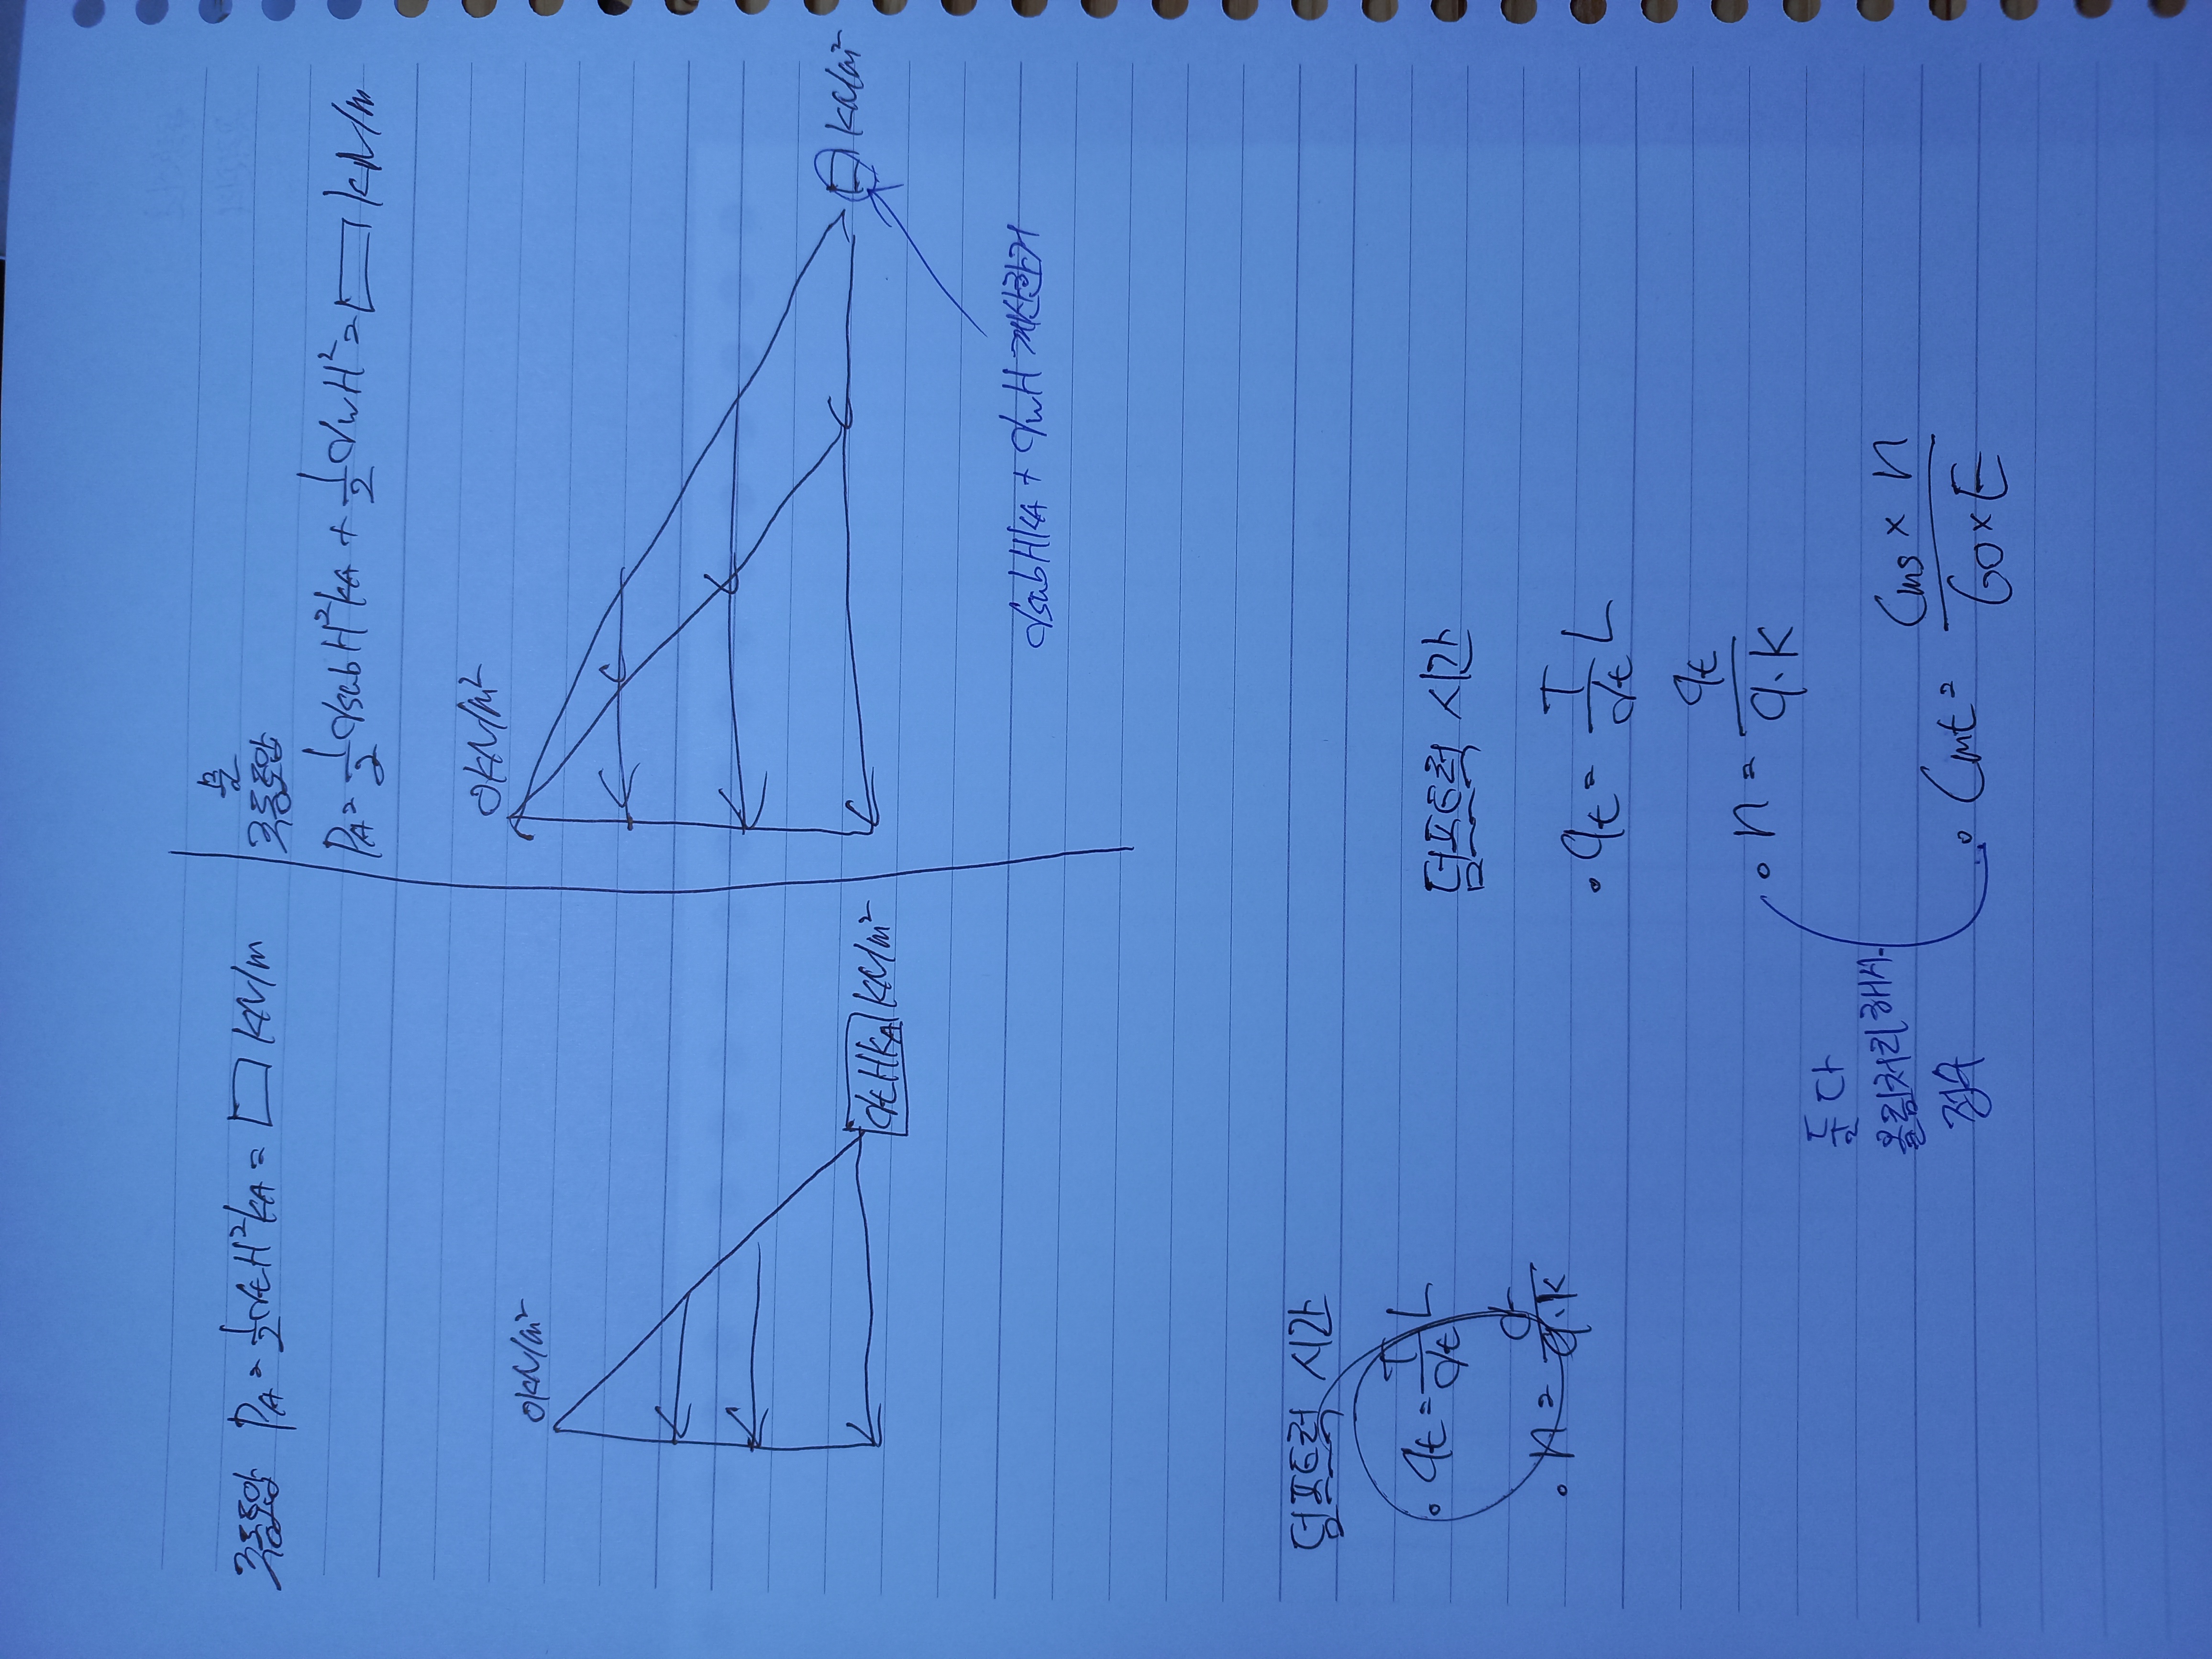 주동토압 P_A = 1/2 γt H² k_A = □ kN/m
0 kN/m²
γt H k_A kN/m²
물
주동토압
P_A = 1/2 γsub H² k_A + 1/2 γw H² = □ kN/m
0 kN/m²
□ kN/m²
γsub H k_A + γw H 계산하기
덤프트럭 시간
• qt = T/γt L
• n = qt/q·K
덤프트럭 시간
• qt = T/γt L
• n = qt/q·K
• Cmt = Cms × n / 60 × E
둘 다
올림처리해서
정수